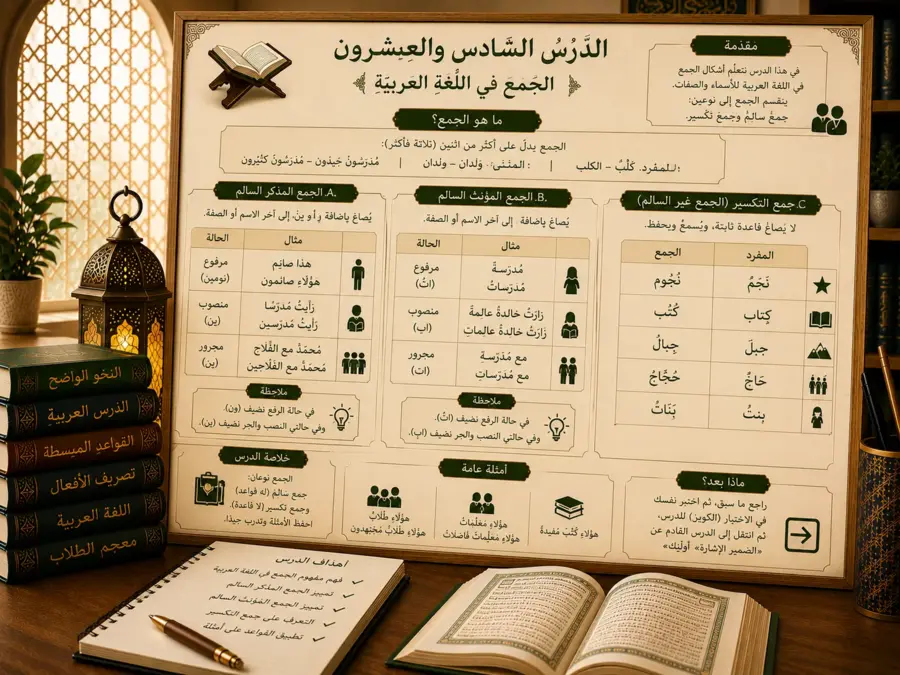 الدَّرْسُ السَّادس والعِشرون
الجَمع في اللُّغةِ العَربيّةِ
مقدّمة
في هذا الدرس نتعلّم أشكال الجمع
في اللغة العربية للأسماء والصفات.
ينقسم الجمع إلى نوعين:
جمعُ سالمُ وجمعُ تكسير.
ما هو الجمع؟
الجمع يدلّ على أكثَر من اثنين (ثلاثة فأكثر):
كَلْبٌ – الكلب
| وَلدان – ولدان |
مُدرّسُونُ – مُدرسُونُ
C. جمع التكسير (الجمع غير السالم)
لا يُصاغُ قاعدة ثابتة، ويُسمعُ ويحفظ.
المفرد الجمع
نَجَمُ نُجُوم
كِتاب كُتُب
جبلَ جِبالُ
حَاجُّ حُجَّاجُ
بِنتُ بَنَاتُ
B. الجمع المؤنث السالم
يُصاغُ بإضافة إلى آخر الاسم أو الصفة.
مثال الحالة
مُدرَسةَ
مُدرَساتُ
مرفوع
(اتُ)
زارَتُ خالدةُ عالمةَ
زَارَتُ خالدةُ عالماتِ
منصوب
(اب)
مع مدْرَسة
مع مُدرَساتِ
مجرور
(ات)
ملاحظة
في حالة الرفع نضيف (اتُ).
وفي حالتي النصب والجر نضيف (ابِ).
A. الجمع المذكر السالم
يُصاغُ بإضافة إلى آخر الاسم أو الصفة.
مثال الحالة
هذا صائم
هؤلَاءِ صائمون
مرفوع
(نومين)
رَأيتُ مُدرَسًا
رَأيتُ مُدرَسين
منصوب
(ين)
مُحمَدُ مع الفَلَّاح
مُحمَدُ مع الفَلَّاحين
مجرور
(ين)
ملاجظة
في حالة الرفع نضيف (ون).
وفي حالتي النصب والجر نضيف (ين).
ماذا بعد؟
راجع ما سبق، ثم اختبر نفسك
في الاختيار (الكويز) للدرس،
ثم انتقل إلى الدرس القادم عن
«الضمير الإشارة» أولَئِك»
أمثلة عامة
هؤلاءِ كُتُبُ مُفيدةُ
هؤلاءِ مُعلِّماتُ
هؤلاءِ مُعلِّمات فَاضلَات
هؤلاءِ طُلّابُ
هؤلاءِ طُلّابُ مُجْتهدون
خلاصة الدرس
الجمع نوعان:
جمع سالمُ (له قواعد)
وجمع تكسير (لا قاعدة).
احفظ الأمثلة وتدرب جيدًا.
النحو الواضح
الدرس العربية
القواعد المبسطة
تصريف الأفعال
اللغة العربية
معجم الطلاب
اهداف الدرس
فهم مفهوم الجمع في اللغة العربية
تمييز الجمع المذكر السالم
تمييز الجمع المؤنث السالم
التعرف على جمع التكسير
تطبيق القواعد على أمثلة